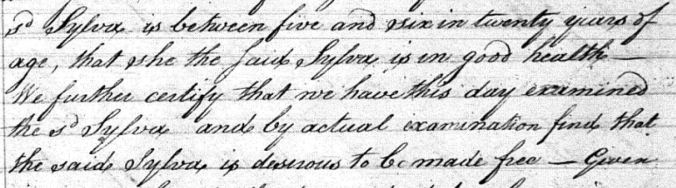 sd Sylva is between five and six in twenty years of
age, that she the said Sylva is in good health —
We further certify that we have this day examined
the sd Sylva and by actual examination find that
the said Sylva is desirous to be made free — Given